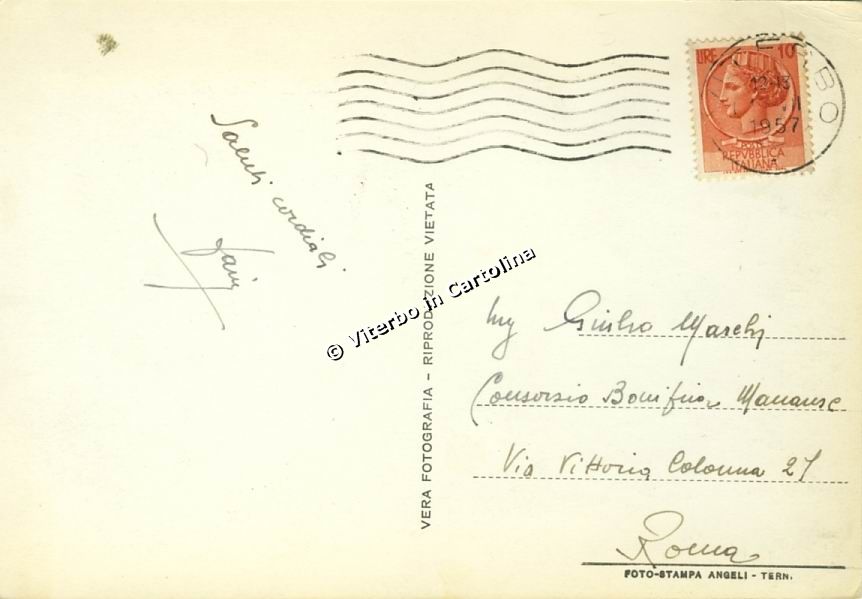 LIRE 10
VITERBO
12-13
1957
REPVBBLICA
ITALIANA
Saluti cordiali
VERA FOTOGRAFIA - RIPRODUZIONE VIETATA
© Viterbo in Cartolina
Ing Giulio Maschi
Consorzio Bonifica Maranese
Via Vittoria Colonna 27
Roma
FOTO-STAMPA ANGELI - TERN.